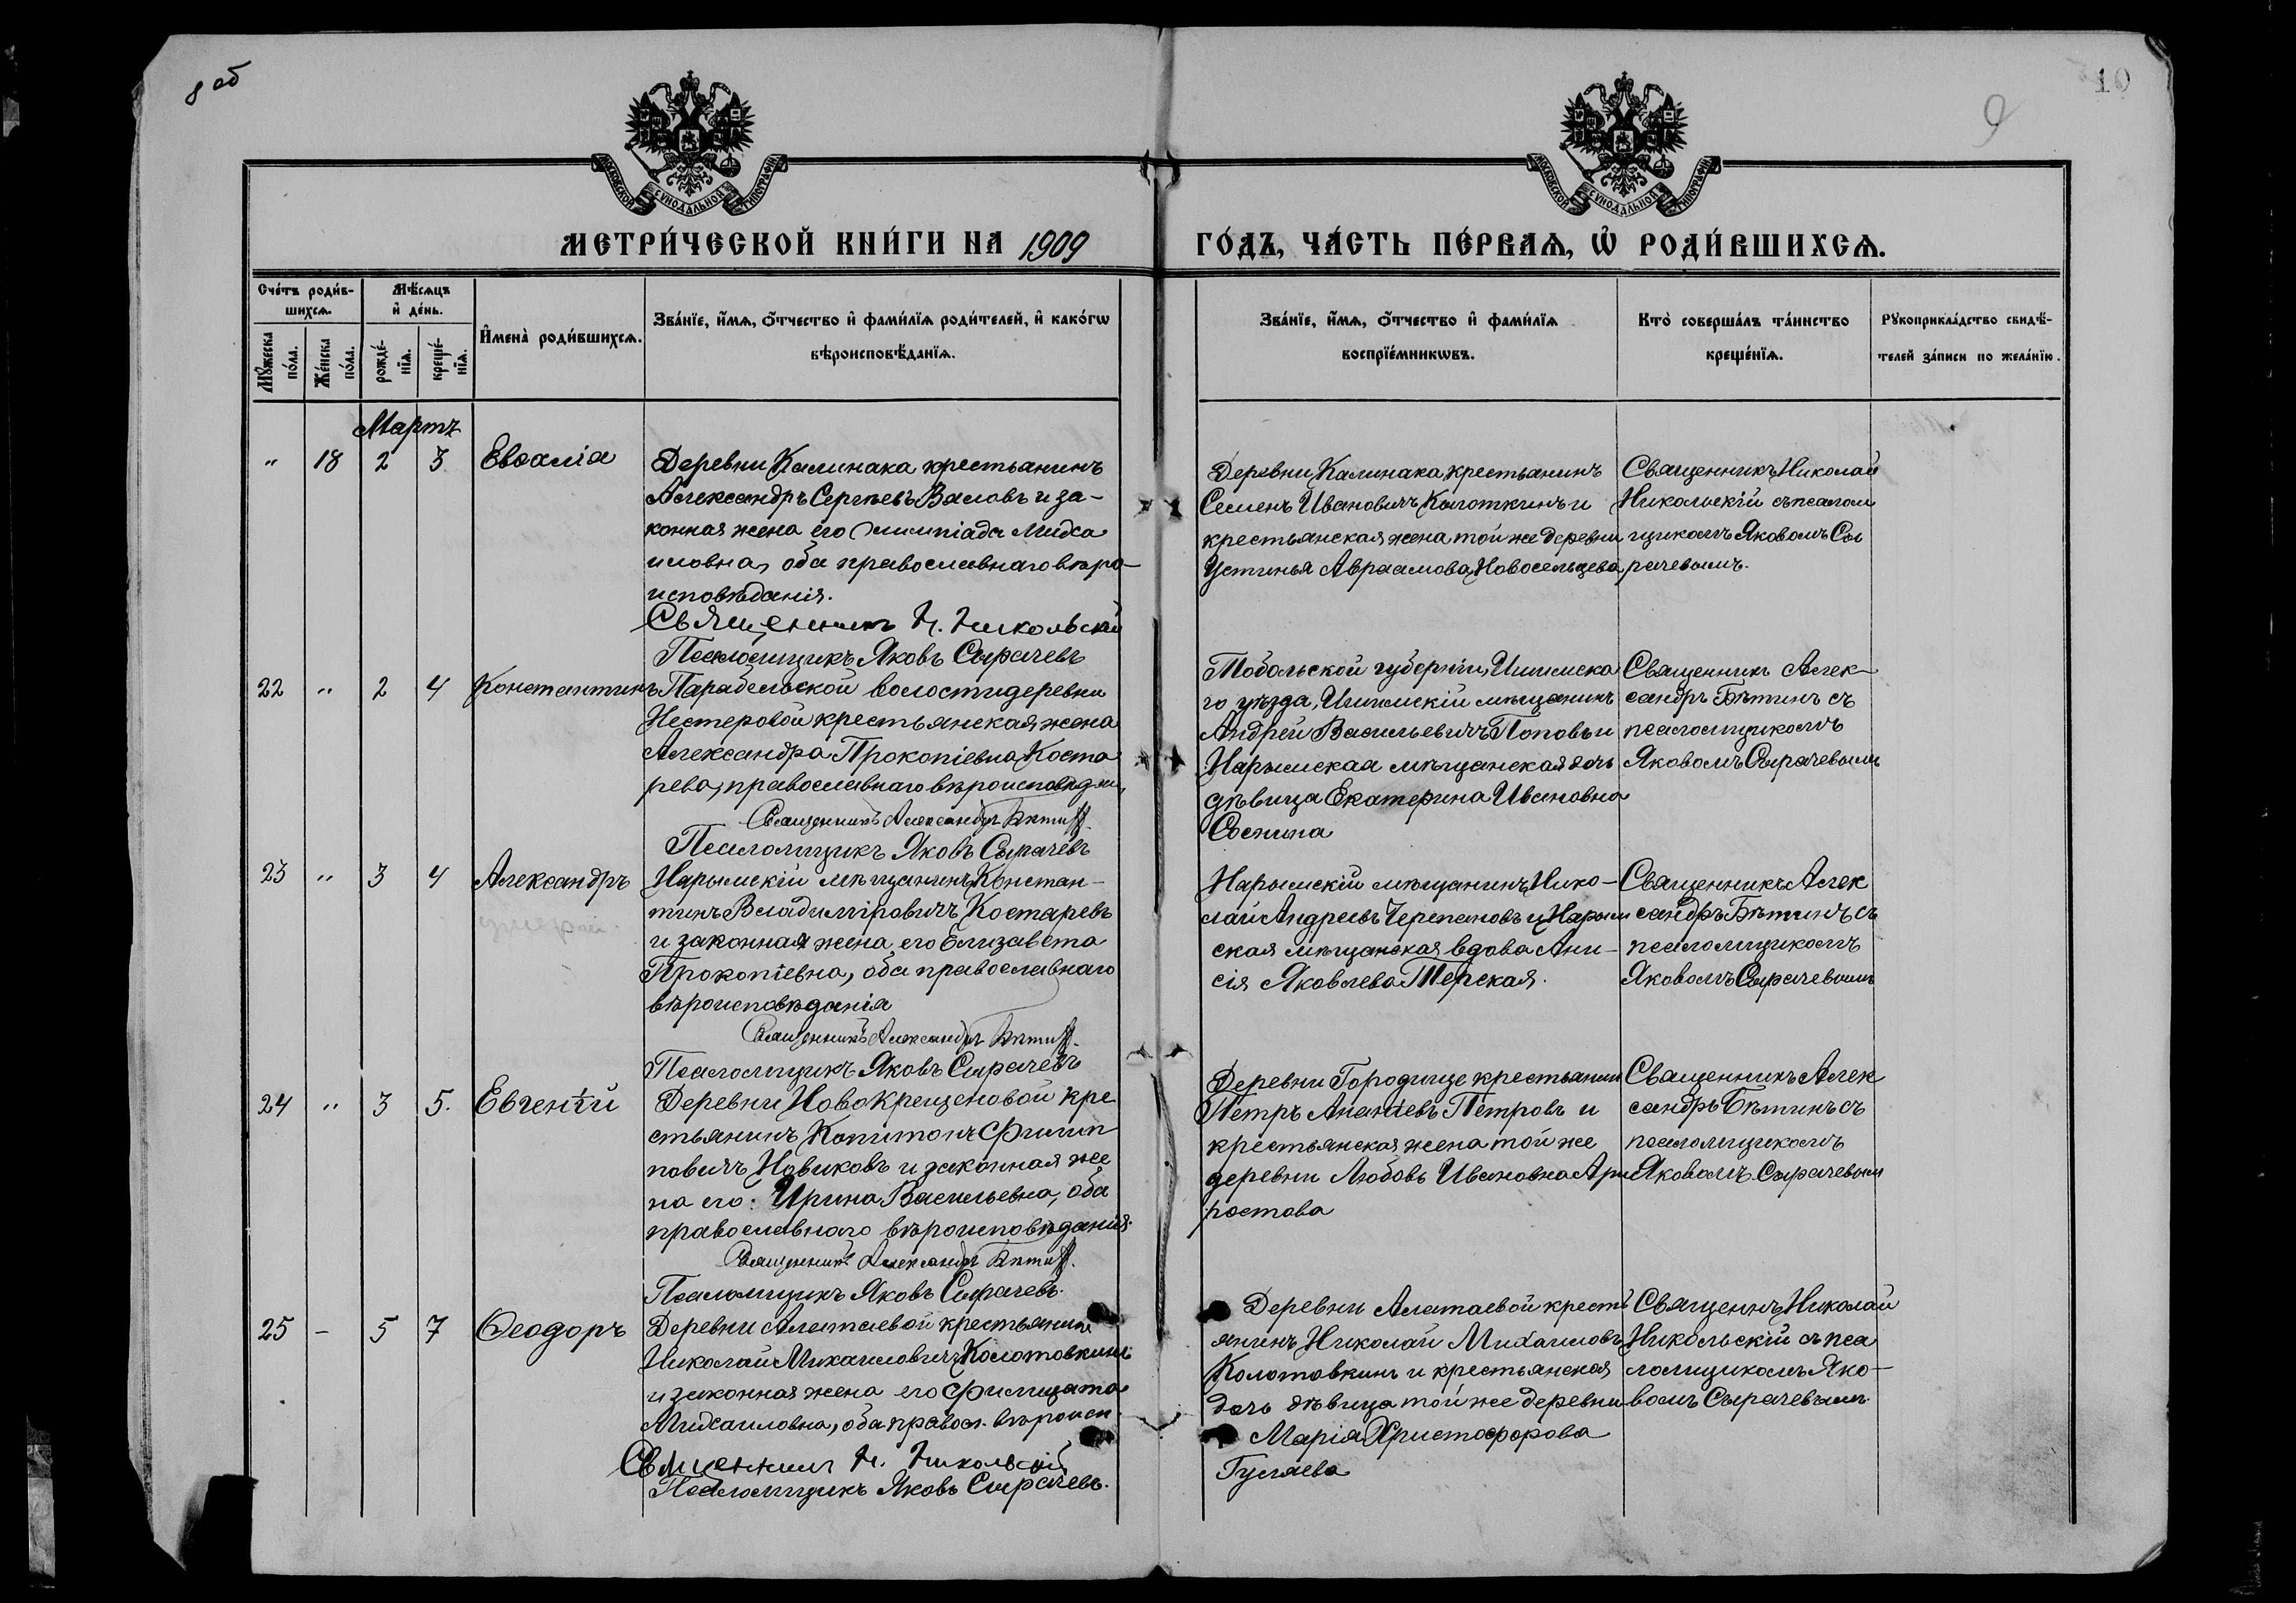 8 об
9
10
МОСКОВСКОЙ СѴНОДАЛЬНОЙ ТИПОГРАФІИ
МОСКОВСКОЙ СѴНОДАЛЬНОЙ ТИПОГРАФІИ
МЕТРИ́ЧЕСКОЙ КНИ́ГИ НА 1909 ГО́ДЪ, ЧА́СТЬ ПЕ́РВАѦ, Ѽ РОДИ́ВШИХСѦ.
Сче́тъ роди́в-
шихсѧ.
Мꙋ́жеска по́ла.
Же́нска по́ла.
Мѣ́сѧцъ
и҆ де́нь.
рожде́-
нїѧ.
креще́-
нїѧ.
И҆мена̀ роди́вшихсѧ.
Зва́нїе, и҆́мѧ, ѻ҆́тчество и҆ фами́лїѧ роди́телей, и҆ како́гѡ
вѣроисповѣ́данїѧ.
Зва́нїе, и҆́мѧ, ѻ҆́тчество и҆ фами́лїѧ
воспрїе́мникѡвъ.
Кто̀ соверша́лъ та́инство
креще́нїѧ.
Рꙋкоприкла́дство свидѣ́-
телей за́писи по жела́нїю.
Мартъ
" 18 2 3 Евѳалія
Деревни Калинака крестьянинъ
Александръ Сергѣевъ Валовъ и за-
конная жена его Олимпіада Миха
иловна, оба православнаго вѣро-
исповѣданія.
Священникъ Н. Никольскій
Псаломщикъ Яковъ Сырачевъ
Деревни Калинака крестьянинъ
Семенъ Ивановичъ Колоткинъ и
крестьянская жена той же деревни
Устинья Авраамова Новосельцева
Священникъ Николай
Никольскій съ псалом
щикомъ Яковомъ Сы
рачевымъ.
22 " 2 4 Константинъ
Парабельской волости деревни
Нестеровой крестьянская жена
Александра Прокопіевна Коста
рева, православнаго вѣроисповѣдан.
Священникъ Александръ Бѣтинъ
Псаломщикъ Яковъ Сырачевъ
Тобольской губерніи, Ишимска
го уѣзда, Ишимскій мѣщанинъ
Андрей Васильевичъ Поповъ и
Нарымская мѣщанская дочь
дѣвица Екатерина Ивановна
Соснина
Священникъ Алек-
сандръ Бѣтинъ съ
псаломщикомъ
Яковомъ Сырачевымъ
23 " 3 4 Александръ
умерш.
Нарымскій мѣщанинъ Констан-
тинъ Владиміровичъ Костаревъ
и законная жена его Елизавета
Прокопіевна, оба православнаго
вѣроисповѣданія
Священникъ Александръ Бѣтинъ
Псаломщикъ Яковъ Сырачевъ
Нарымскій мѣщанинъ Нико-
лай Андреевъ Черепановъ и Нарым
ская мѣщанская вдова Ани-
сія Яковлева Терская.
Священникъ Алек
сандръ Бѣтинъ съ
псаломщикомъ
Яковомъ Сырачевымъ
24 " 3 5. Евгеній
Деревни Новокрещеновой кре
стьянинъ Капитонъ Филип
повичъ Новиковъ и законная же
на его: Ирина Васильевна, оба
православнаго вѣроисповѣданія.
Священникъ Александръ Бѣтинъ
Псаломщикъ Яковъ Сырачевъ.
Деревни Городище крестьянинъ
Петръ Ананіевъ Петровъ и
крестьянская жена той же
деревни Любовь Ивановна Ари
ростова
Священникъ Алек
сандръ Бѣтинъ съ
псаломщикомъ
Яковомъ Сырачевым
25 - 5 7 Ѳеодоръ
Деревни Алатаевой крестьянинъ
Николай Михаиловичъ Колотовкинъ
и законная жена его Филицата
Михаиловна, оба правосл. вѣроисп.
Священникъ Н. Никольскій
Псаломщикъ Яковъ Сырачевъ.
Деревни Алатаевой кресть
янинъ Николай Михаиловъ
Колотовкинъ и крестьянская
дочь дѣвица той же деревни
Марія Христофорова
Гуляева
Священнъ Николай
Никольскій съ пса
ломщикомъ Яко-
вомъ Сырачевымъ